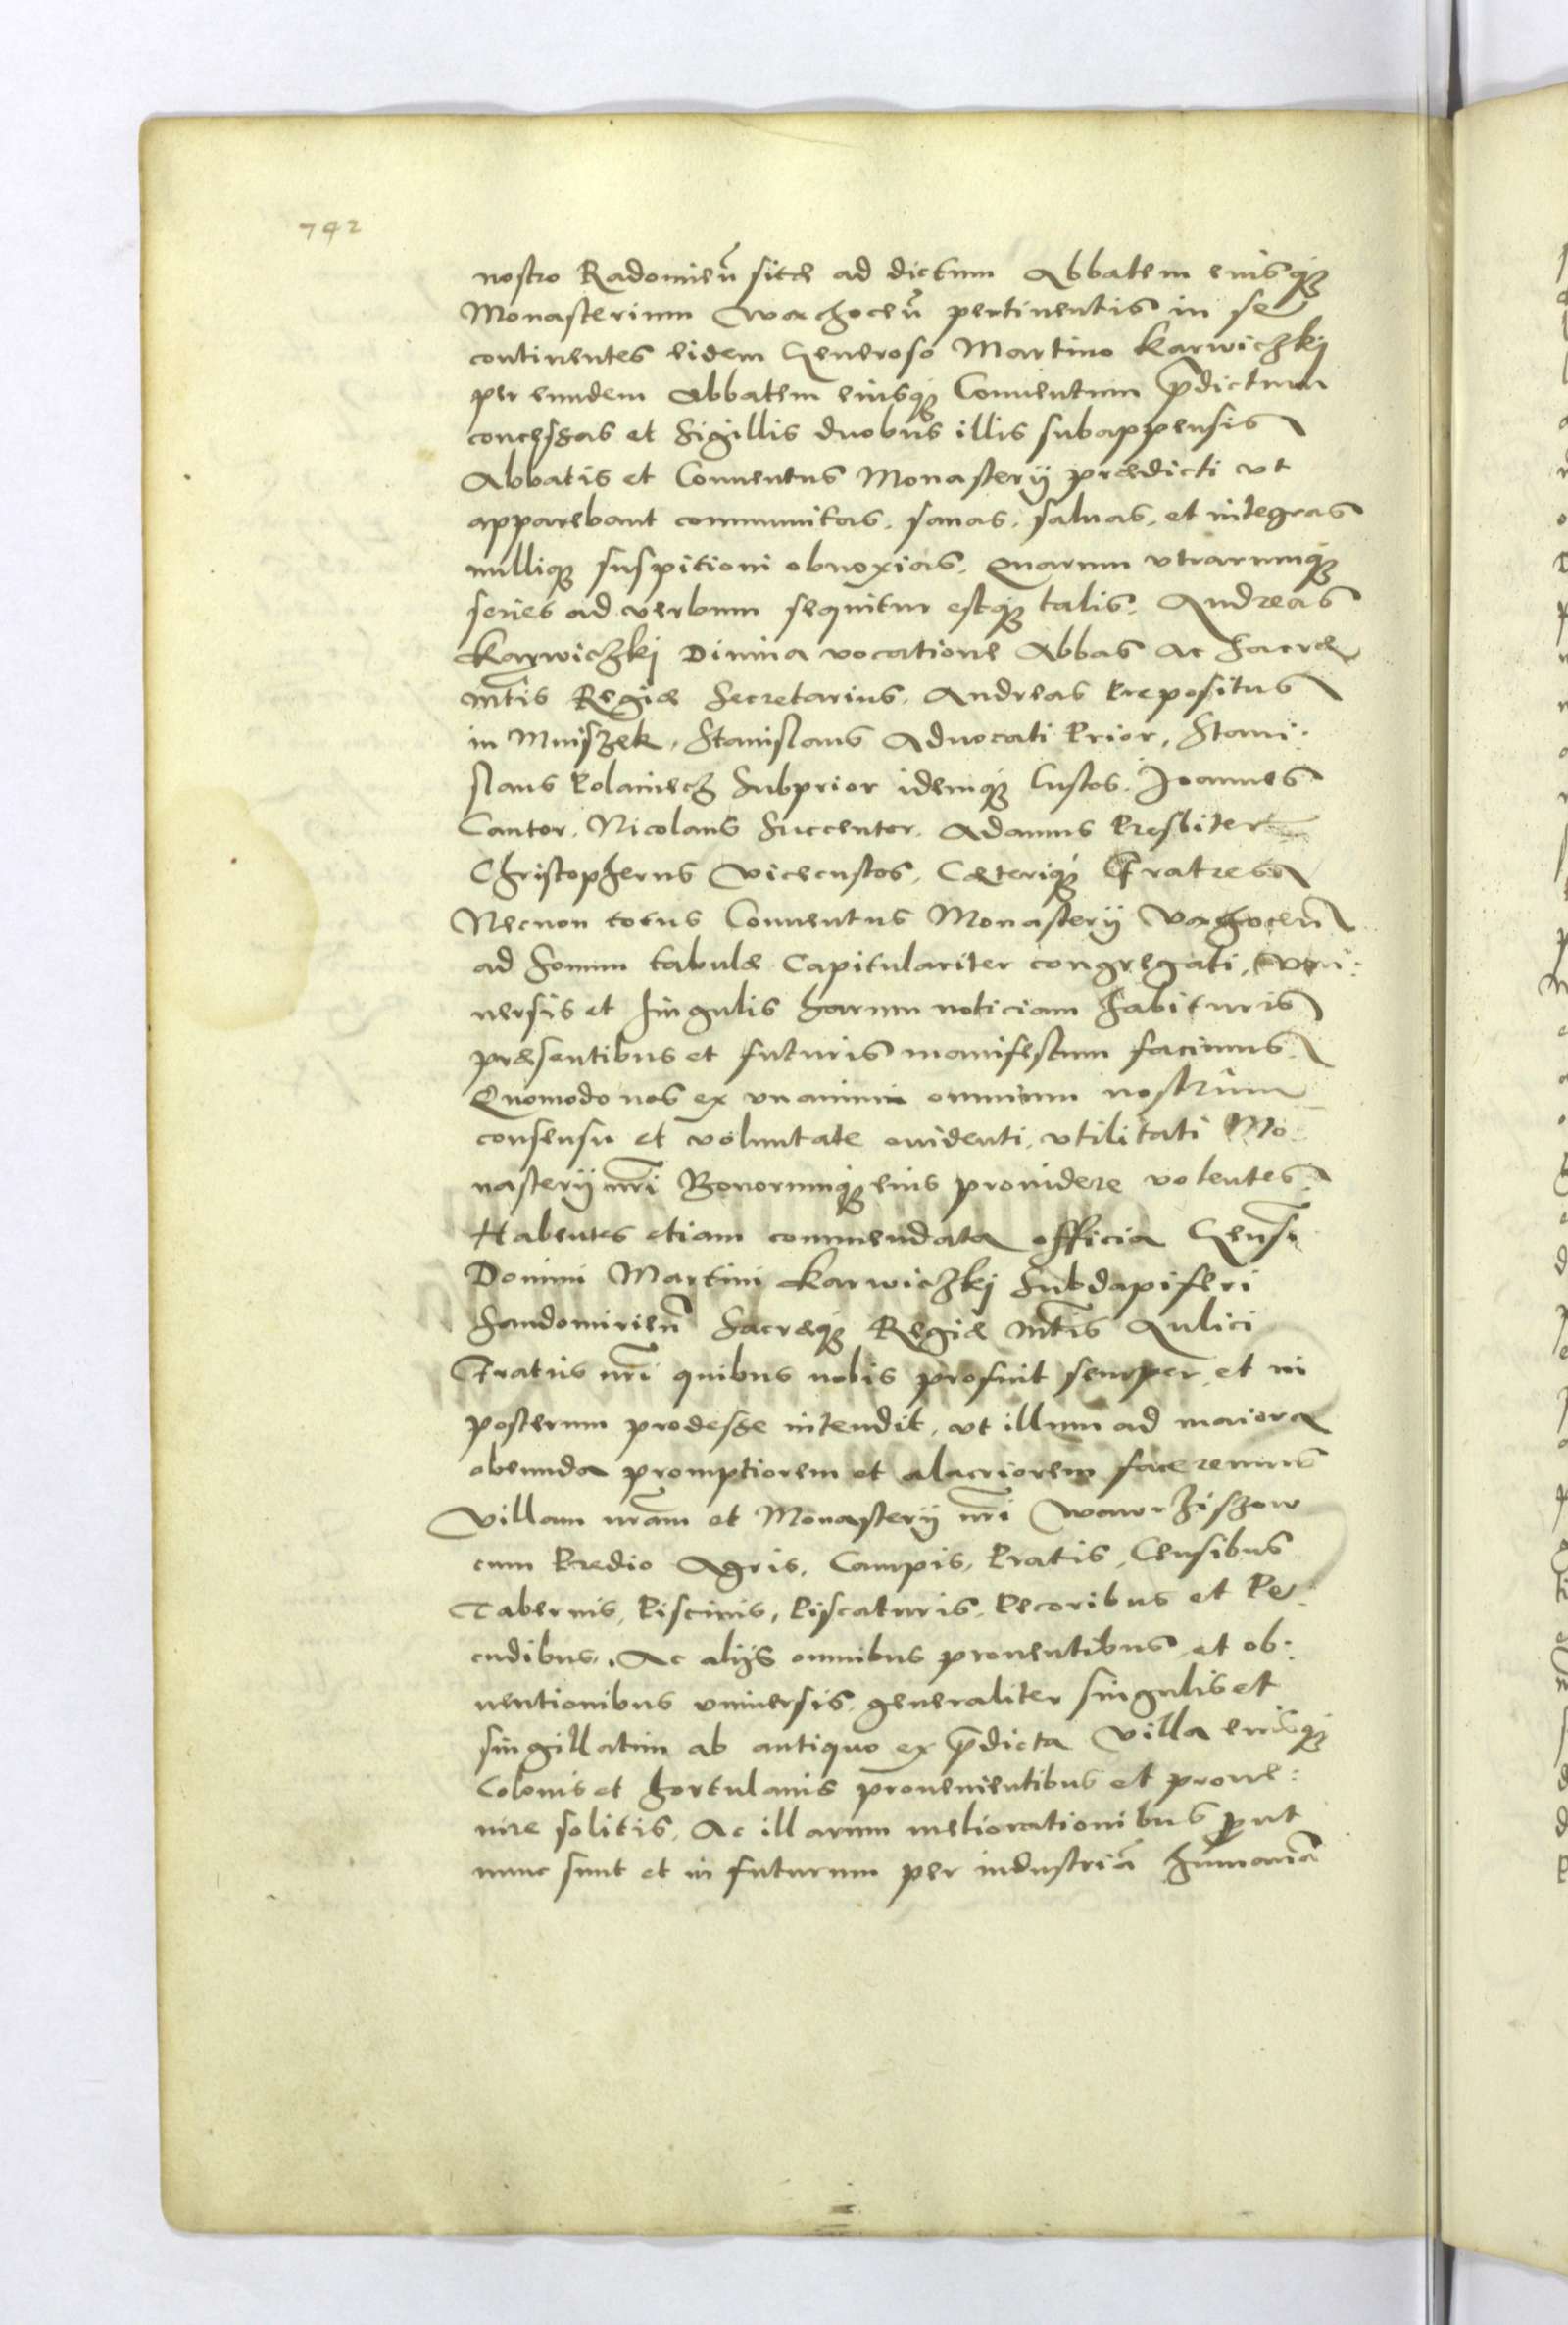 742
nostro Radomień sitæ ad dictum Abbatem eiusq₃
Monasterium Wachoceń pertinentis in se
continentes eidem Generoso Martino Karwiczkij
per eundem Abbatem eiusq₃ Conuentum p̄dictum
concessas et Sigillis duobus illis subappensis
Abbatis et Conuentus Monasterij prædicti vt
apparebant communitas, sanas, saluas, et integras
nulliq₃ suspitioni obnoxias, Quarum vtrarumq₃
series ad verbum sequitur estq₃ talis. Andreas
Karwiczkij Diuina vocatione Abbas ac Sacræ
Mtis Regiæ Secretarius, Andreas Prepositus
in Mniszek, Stanislaus Aduocati Prior, Stani:
slaus Polaniecz Subprior idemq₃ Custos, Joannes
Cantor, Nicolaus Succentor, Adamus Presbiter
Christopherus Vicecustos, Cæteriq₃ Fratres
Necnon totus Conuentus Monasterij Vachoceń
ad Sonum tabulæ Capitulariter congregati, Vni:
uersis et Singulis harum noticiam habituris
præsentibus et futuris manifestum facimus,
Quomodo nos ex vnanimi omnium nostrûm
consensu et voluntate euidenti, vtilitati Mo:
nasterij nr̄i Bonorumq₃ eius prouidere volentes,
Habentes etiam commendata officia Gensi
Domini Martini Karwiczkij Subdapiferi
Sandomirień Sacræq₃ Regiæ Mtis Aulici
Fratris nr̄i quibus nobis profuit semper, et in
posterum prodesse intendit, vt illum ad maiora
obeunda promptiorem et alacriorem faceremus
Villam nr̄am et Monasterij nr̄i Wawrziszow
cum Predio Agris, Campis, Pratis, Censibus
Tabernis, Piscinis, Piscaturis, Pecoribus et Pe:
cudibus, Ac alijs omnibus prouentibus et ob:
uentionibus vniuersis, generaliter singulis et
singillatim ab antiquo ex p̄dicta Villa eiusq₃
Colonis et hortulanis prouenientibus et proue:
nire solitis, Ac illarum meliorationibus ꝓut
nunc sunt et in futurum per industriā humanā